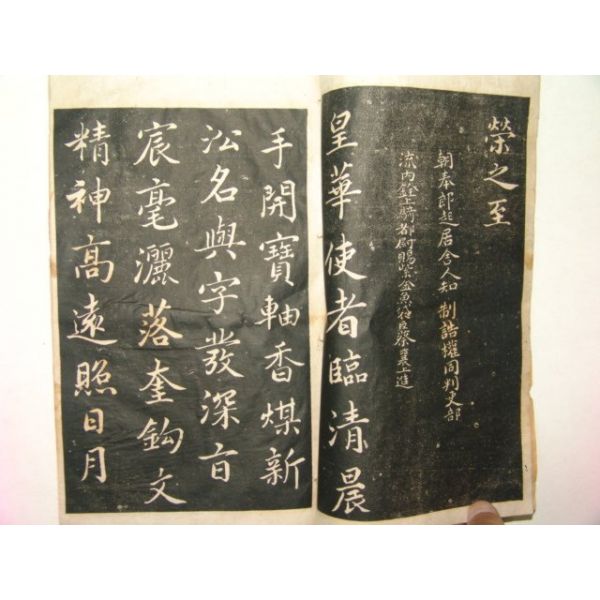 榮之至
朝奉郎起居舍人知制誥權同判吏部
流內銓上騎都尉賜紫金魚袋臣蔡襄上進
皇華使者臨清晨
手開寶軸香煤新
沄名與字發深旨
宸毫灑落奎鈎文
精神高遠照日月